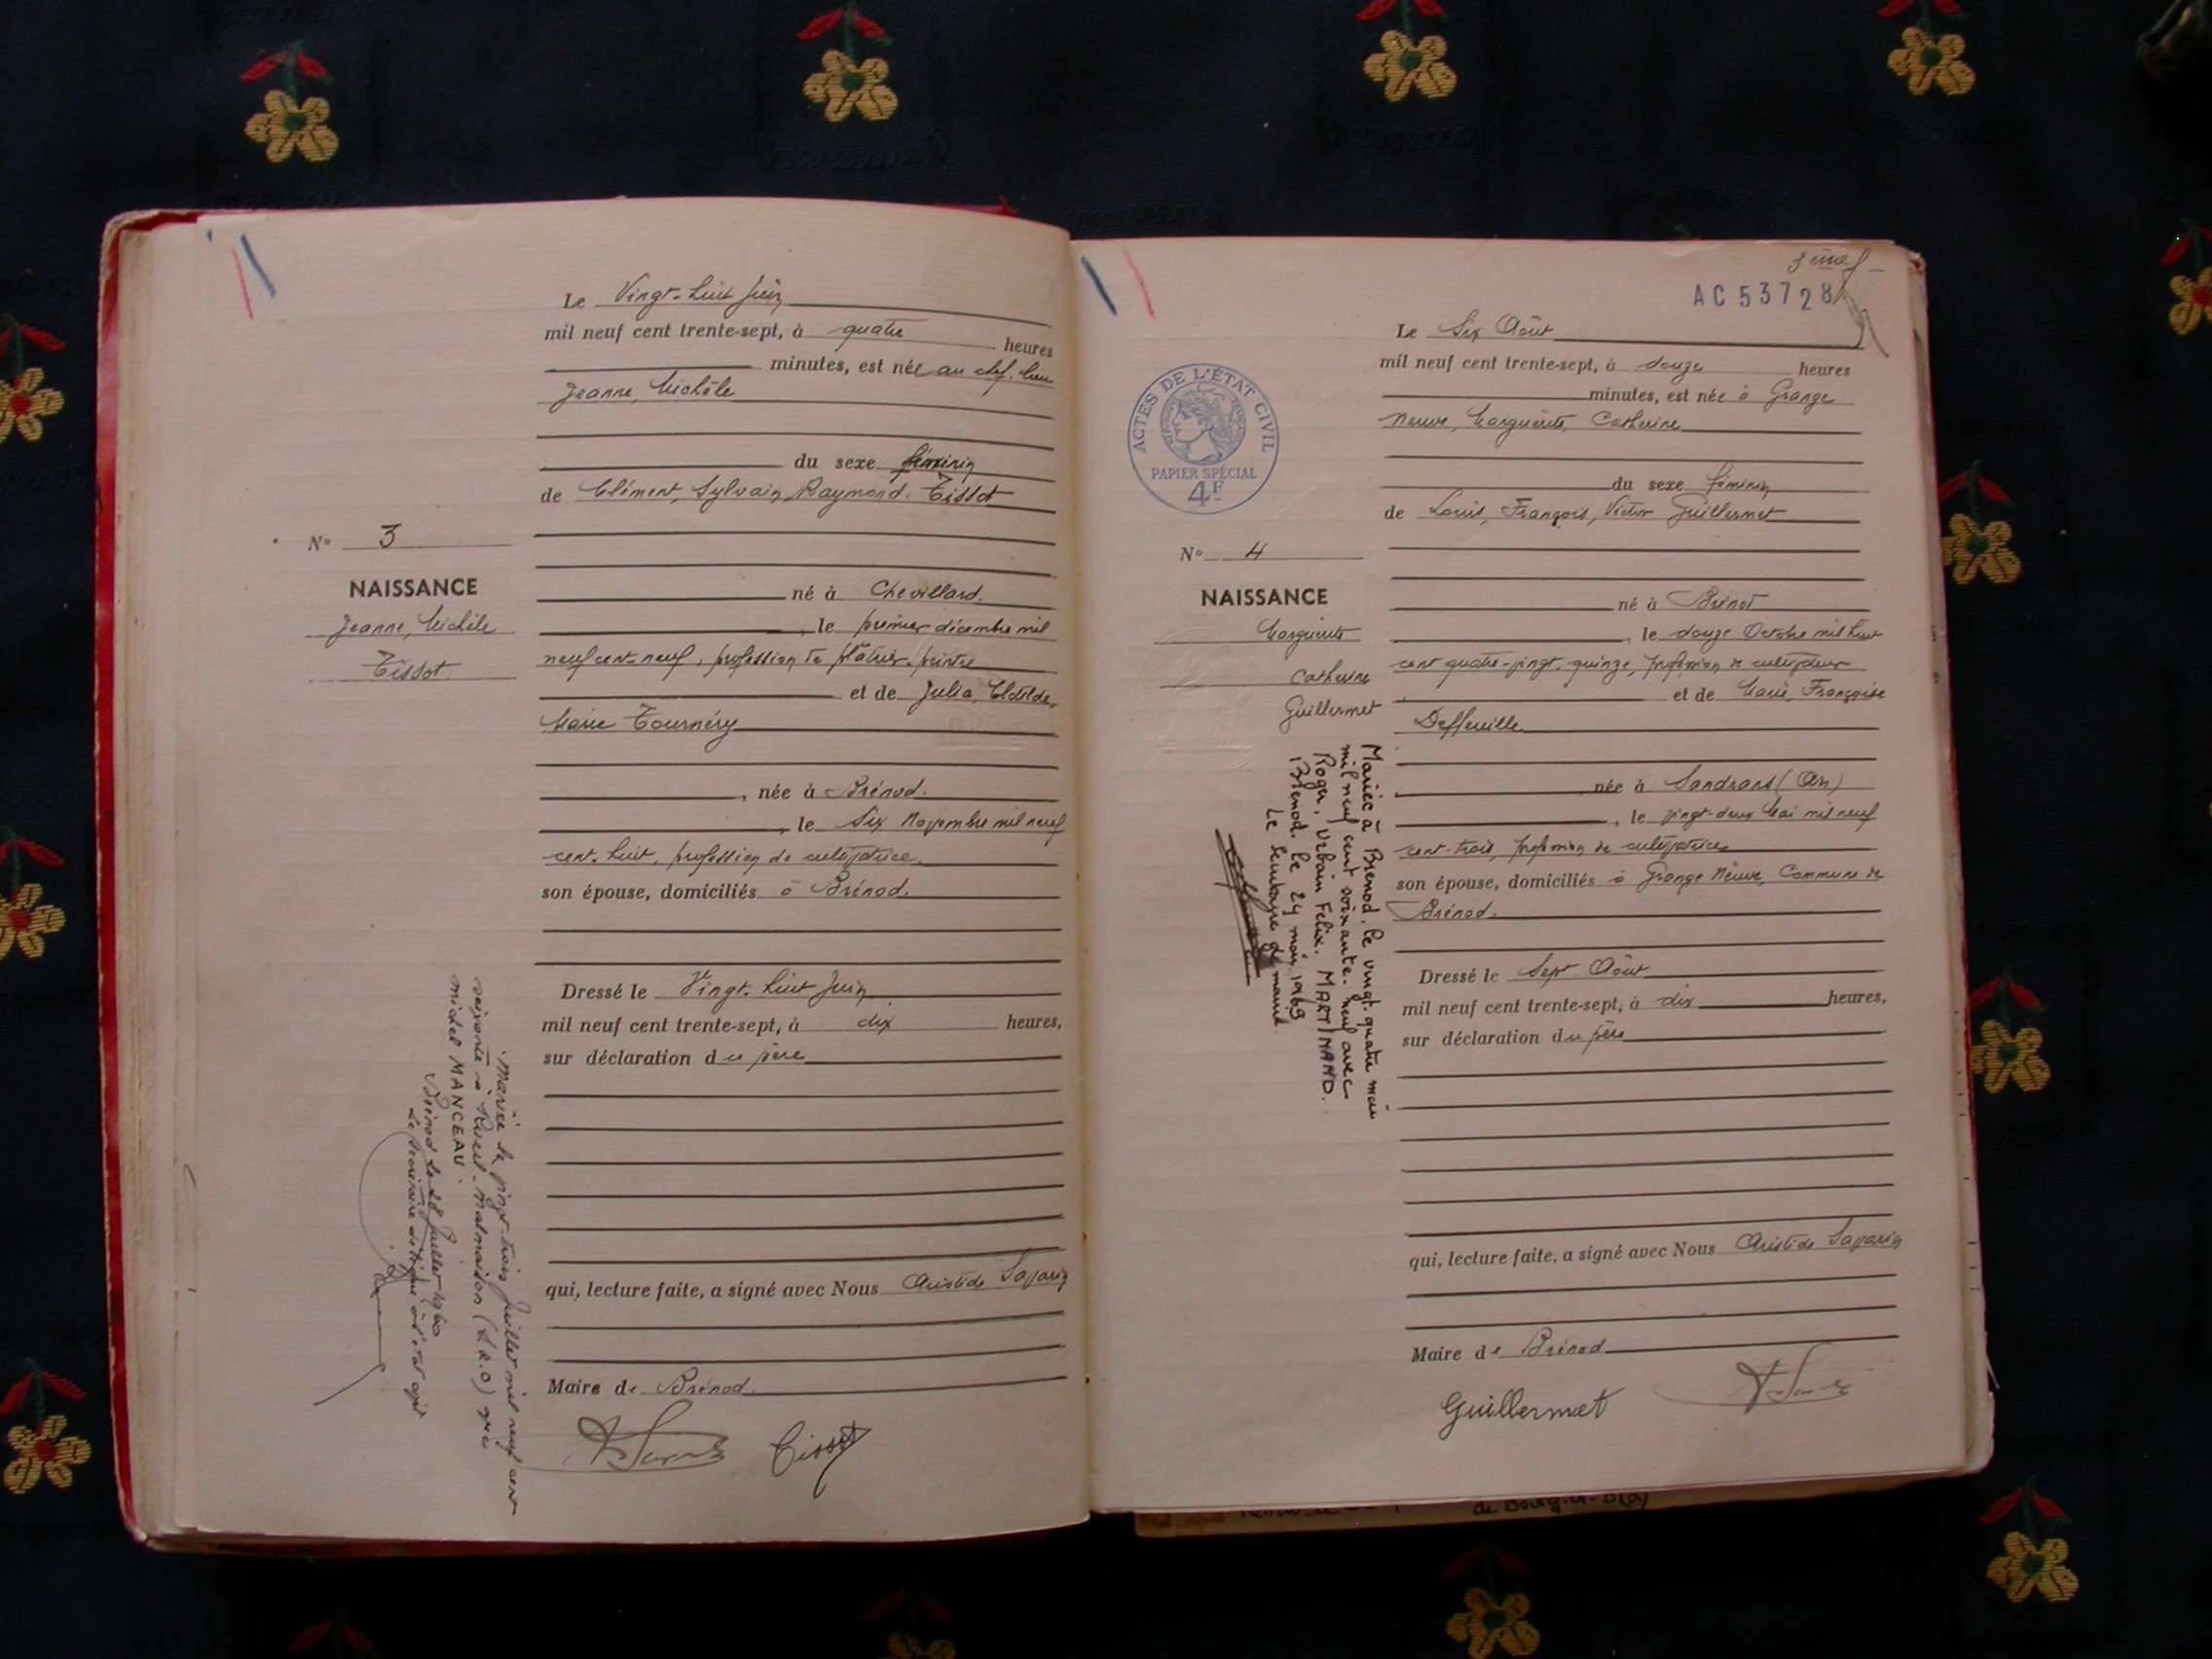 Le Vingt-huit Juin
mil neuf cent trente-sept, à quatre heures
minutes, est née au chef-lieu
Jeanne, Michèle
du sexe féminin
de Clément, Sylvain, Raymond, Tissot
N° 3
NAISSANCE
Jeanne, Michèle
Tissot.
né à Chevillard.
, le premier décembre mil
neuf cent-neuf, profession de plâtrier-peintre
et de Julia, Clotilde,
Marie Tournéry
, née à Brénod.
, le Six Novembre mil neuf
cent-huit, profession de cultivatrice.
son épouse, domiciliés à Brénod.
Dressé le Vingt-huit Juin
mil neuf cent trente-sept, à dix heures,
sur déclaration du père
qui, lecture faite, a signé avec Nous Aristide Savarin
Maire de Brénod.
Tissot
Mariée le vingt-trois Juillet mil neuf cent
soixante à Rueil-Malmaison (S.&O) avec
Michel MANCEAU.
Brénod le 28 Juillet 1960
3ème f
AC 53728
ACTES DE L'ÉTAT CIVIL
PAPIER SPÉCIAL
4F
Le Six Août
mil neuf cent trente-sept, à douze heures
minutes, est née à Grange
Neuve, Marguerite, Catherine
du sexe féminin
de Louis, François, Victor Guillermet
N° 4
NAISSANCE
Marguerite
Catherine
Guillermet
né à Brénod
, le douze Octobre mil huit
cent quatre-vingt-quinze, profession de cultivateur
et de Marie, Françoise
Deffeuille
née à Sandrans (Ain)
, le vingt-deux Mai mil neuf
cent-trois, profession de cultivatrice
son épouse, domiciliés à Grange Neuve, Commune de
Brénod.
Dressé le Sept Août
mil neuf cent trente-sept, à dix heures,
sur déclaration du père
qui, lecture faite, a signé avec Nous Aristide Savarin
Maire de Brénod
Guillermet
Mariée à Brenod, le vingt-quatre mai
mil neuf cent soixante-neuf avec
Roger, Urbain Felix. MARTINAND.
Brenod. le 24 mai 1969
Le Secrétaire de mairie